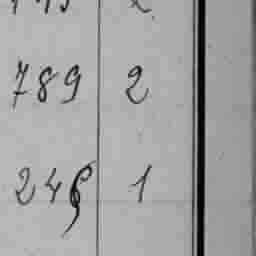 789 2
246 1